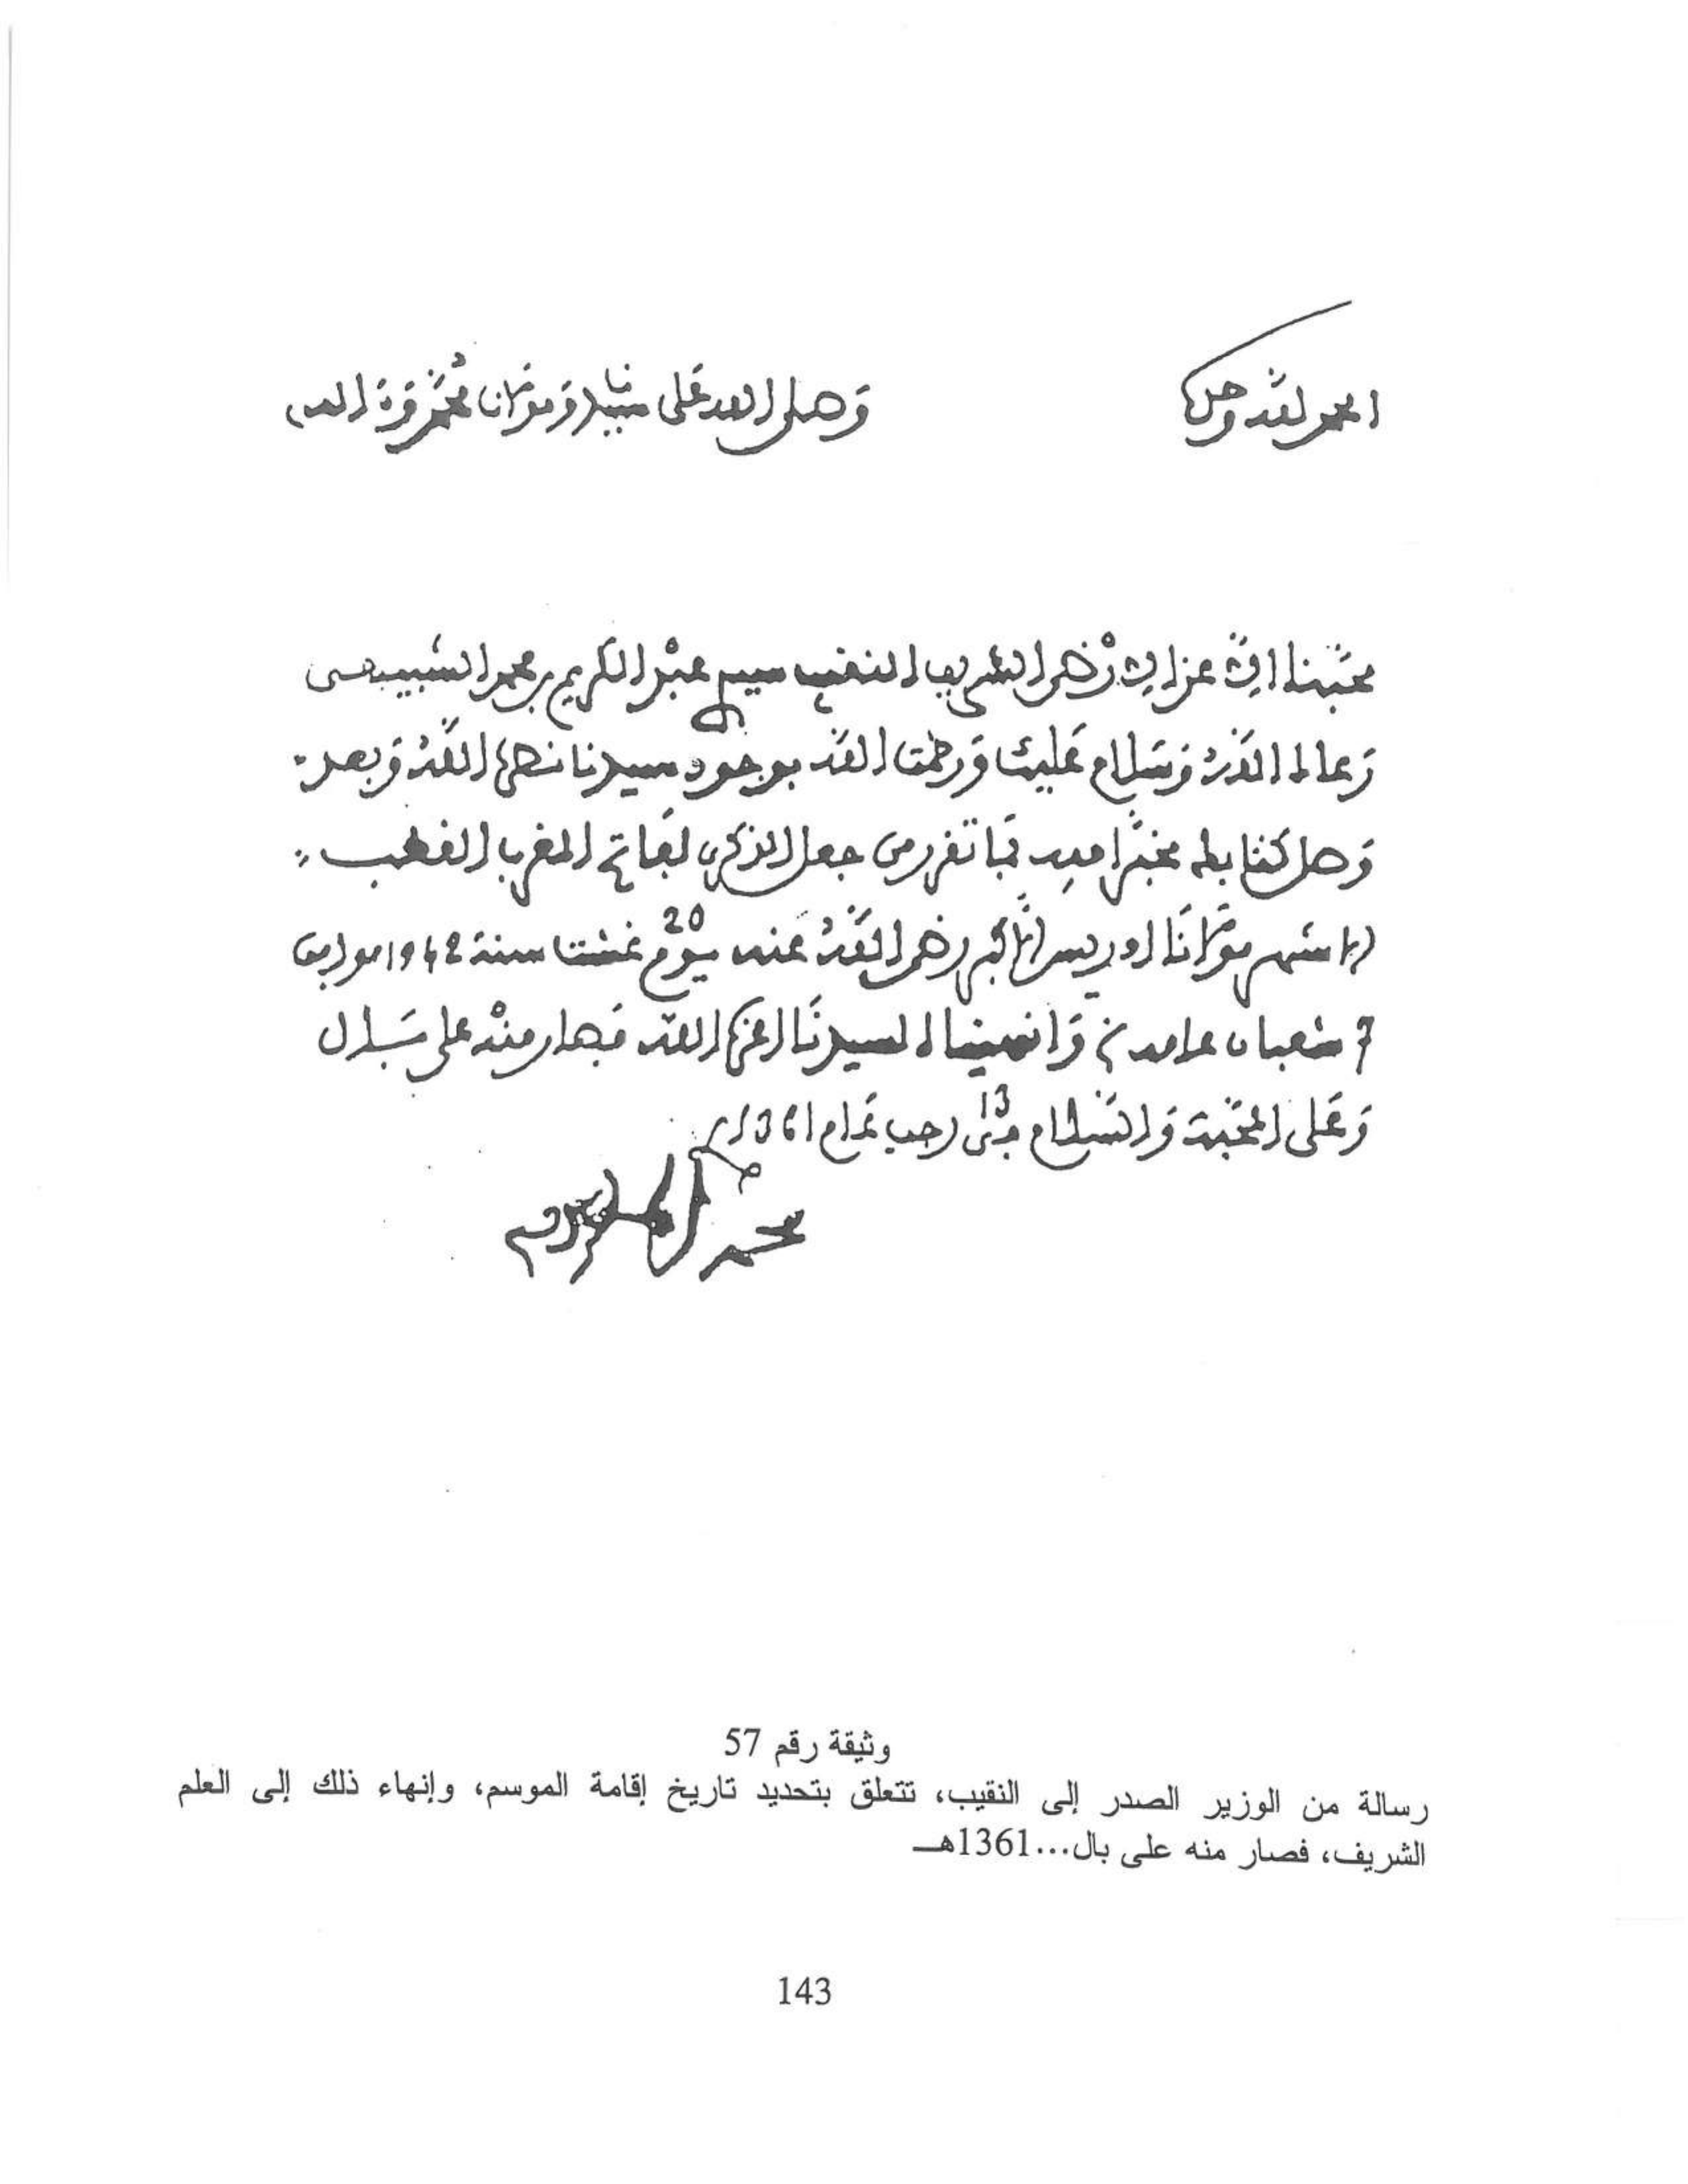 الحمد لله وحده
وصلى الله على سيدنا ومولانا محمد وءاله
محبنا الأعز الأرضى الشريف النقيب سيدي عبد الكريم بن محمد الشبيهي
رعاك الله وسلام عليك ورحمت الله بوجود سيدنا نصره الله وبعد
وصل كتابك مخبرا فيه بما تقرر من جعل الذكرى لفاتح المغرب القطب
الأشهر مولانا ادريس الأكبر رضي الله عنه يوم 20 غشت سنة 1942 موافق
7 شعبان عامه وانهيناه لسيدنا أعزه الله فصار منه على بال
وعلى المحبة والسلام في 13 رجب عام 1361
محمد المقري
وثيقة رقم 57
رسالة من الوزير الصدر إلى النقيب، تتعلق بتحديد تاريخ إقامة الموسم، وإنهاء ذلك إلى العلم
الشريف، فصار منه على بال...1361هـ
143